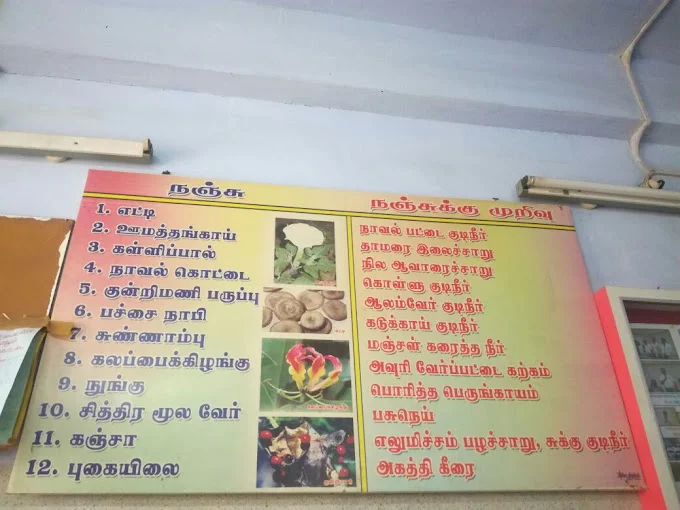 நஞ்சு
1. எட்டி
2. ஊமத்தங்காய்
3. கள்ளிப்பால்
4. நாவல் கொட்டை
5. குன்றிமணி பருப்பு
6. பச்சை நாபி
7. சுண்ணாம்பு
8. கலப்பைக்கிழங்கு
9. நுங்கு
10. சித்திர மூல வேர்
11. கஞ்சா
12. புகையிலை
நஞ்சுக்கு முறிவு
நாவல் பட்டை குடிநீர்
தாமரை இலைச்சாறு
நில ஆவாரைச்சாறு
கொள்ளு குடிநீர்
ஆலம்வேர் குடிநீர்
கடுக்காய் குடிநீர்
மஞ்சள் கரைத்த நீர்
அவுரி வேர்ப்பட்டை கற்கம்
பொரித்த பெருங்காயம்
பசுநெய்
எலுமிச்சம் பழச்சாறு, சுக்கு குடிநீர்
அகத்தி கீரை